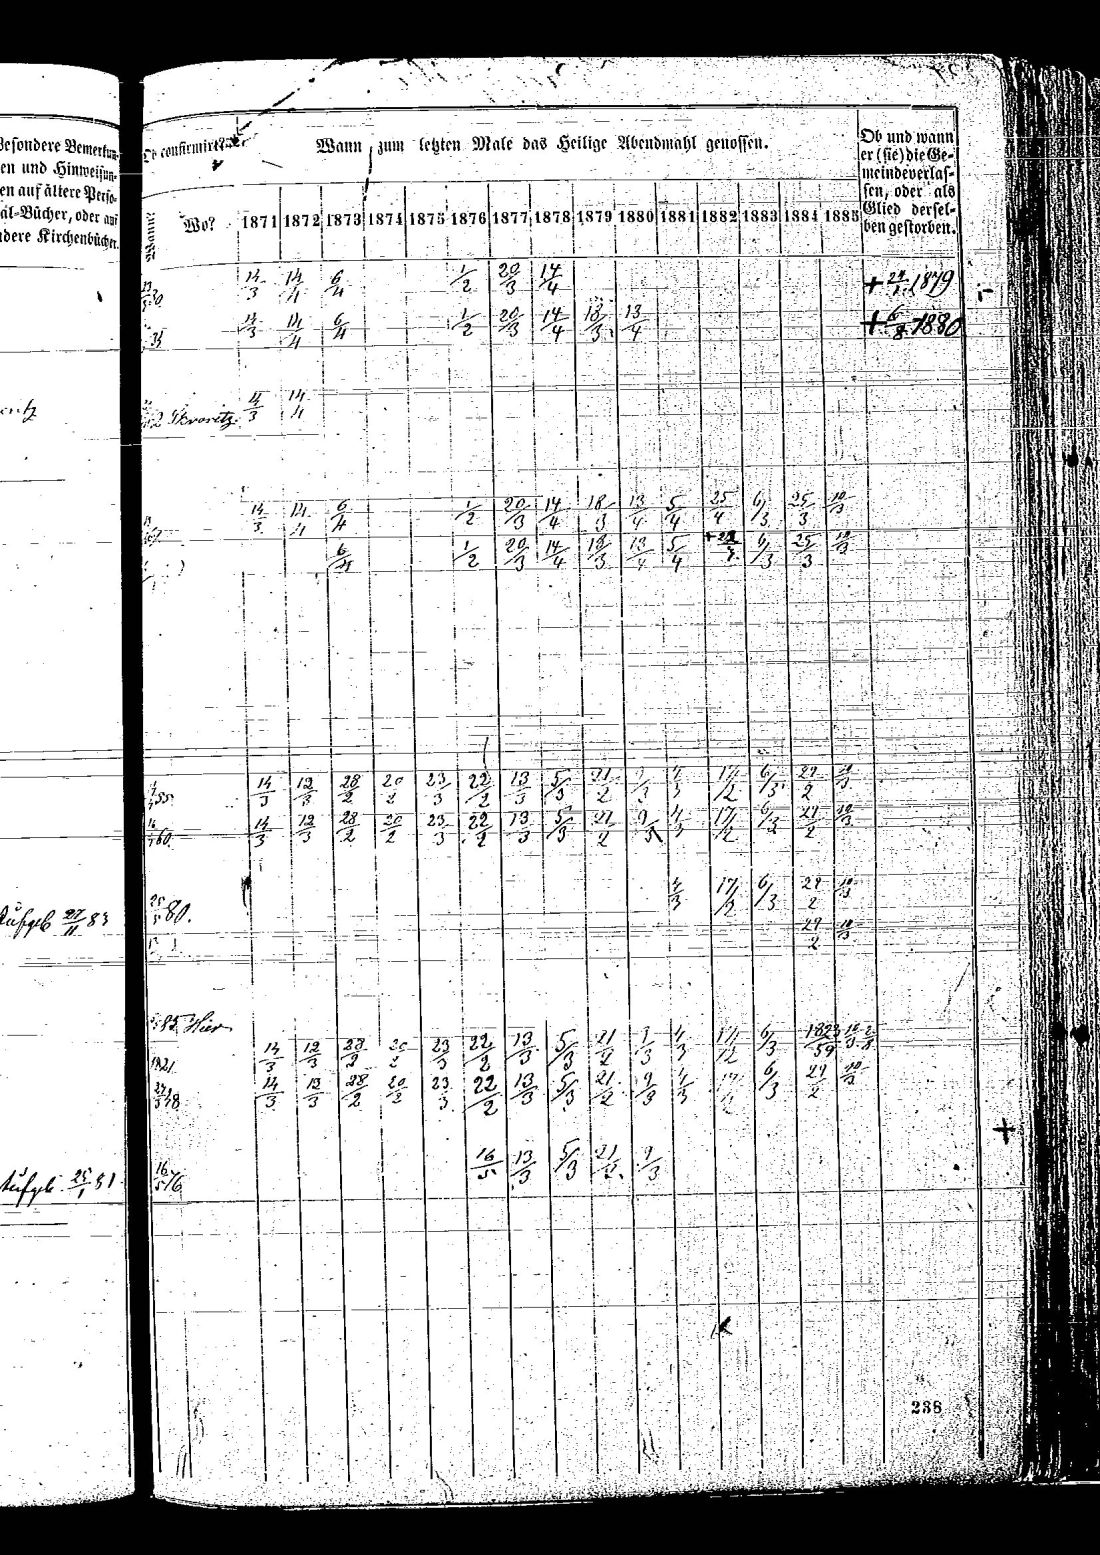 Besondere Bemerkun-
en und Hinweisun-
en auf ältere Perso-
al-Bücher, oder auf
ndere Kirchenbücher.
Ob confirmirt?
Wann zum letzten Male das Heilige Abendmahl genossen.
Ob und wann
er (sie) die Ge-
meinde verlas-
sen, oder als
Glied dersel-
ben gestorben.
Wann? Wo? 1871 1872 1873 1874 1875 1876 1877 1878 1879 1880 1881 1882 1883 1884 1885
14/3 14/4 6/4 1/2 20/3 14/4 + 24/1 1879
14/3 14/4 6/4 1/2 20/3 14/4 18/3 13/4 + 6/8 1880
14/3 14/4
14/3 14/4 6/4 1/2 20/3 14/4 18/3 13/4 5/4 25/4 6/3 25/3 10/3
6/4 1/2 20/3 14/4 18/3 13/4 5/4 6/3 25/3 10/3
55. 14/3 12/3 28/2 20/2 23/3 22/2 13/3 5/3 21/2 9/3 4/3 17/2 6/3 29/2 10/3
60. 14/3 12/3 28/2 20/2 23/3 22/2 13/3 5/3 21/2 9/3 4/3 17/2 6/3 29/2 10/3
Aufgeb 27/11 83 25/5 80. 4/3 17/2 6/3 29/2 10/3
29/2 10/3
85 Hier
1821 14/3 12/3 28/2 20/2 23/3 22/2 13/3 5/3 21/2 9/3 4/3 17/2 6/3
14/3 12/3 28/2 20/2 23/3 22/2 13/3 5/3 21/2 9/3 4/3 17/2 6/3 29/2 10/3
Aufgeb 25/1 81 16/5 76 16/5 13/3 5/3 21/2 9/3
238